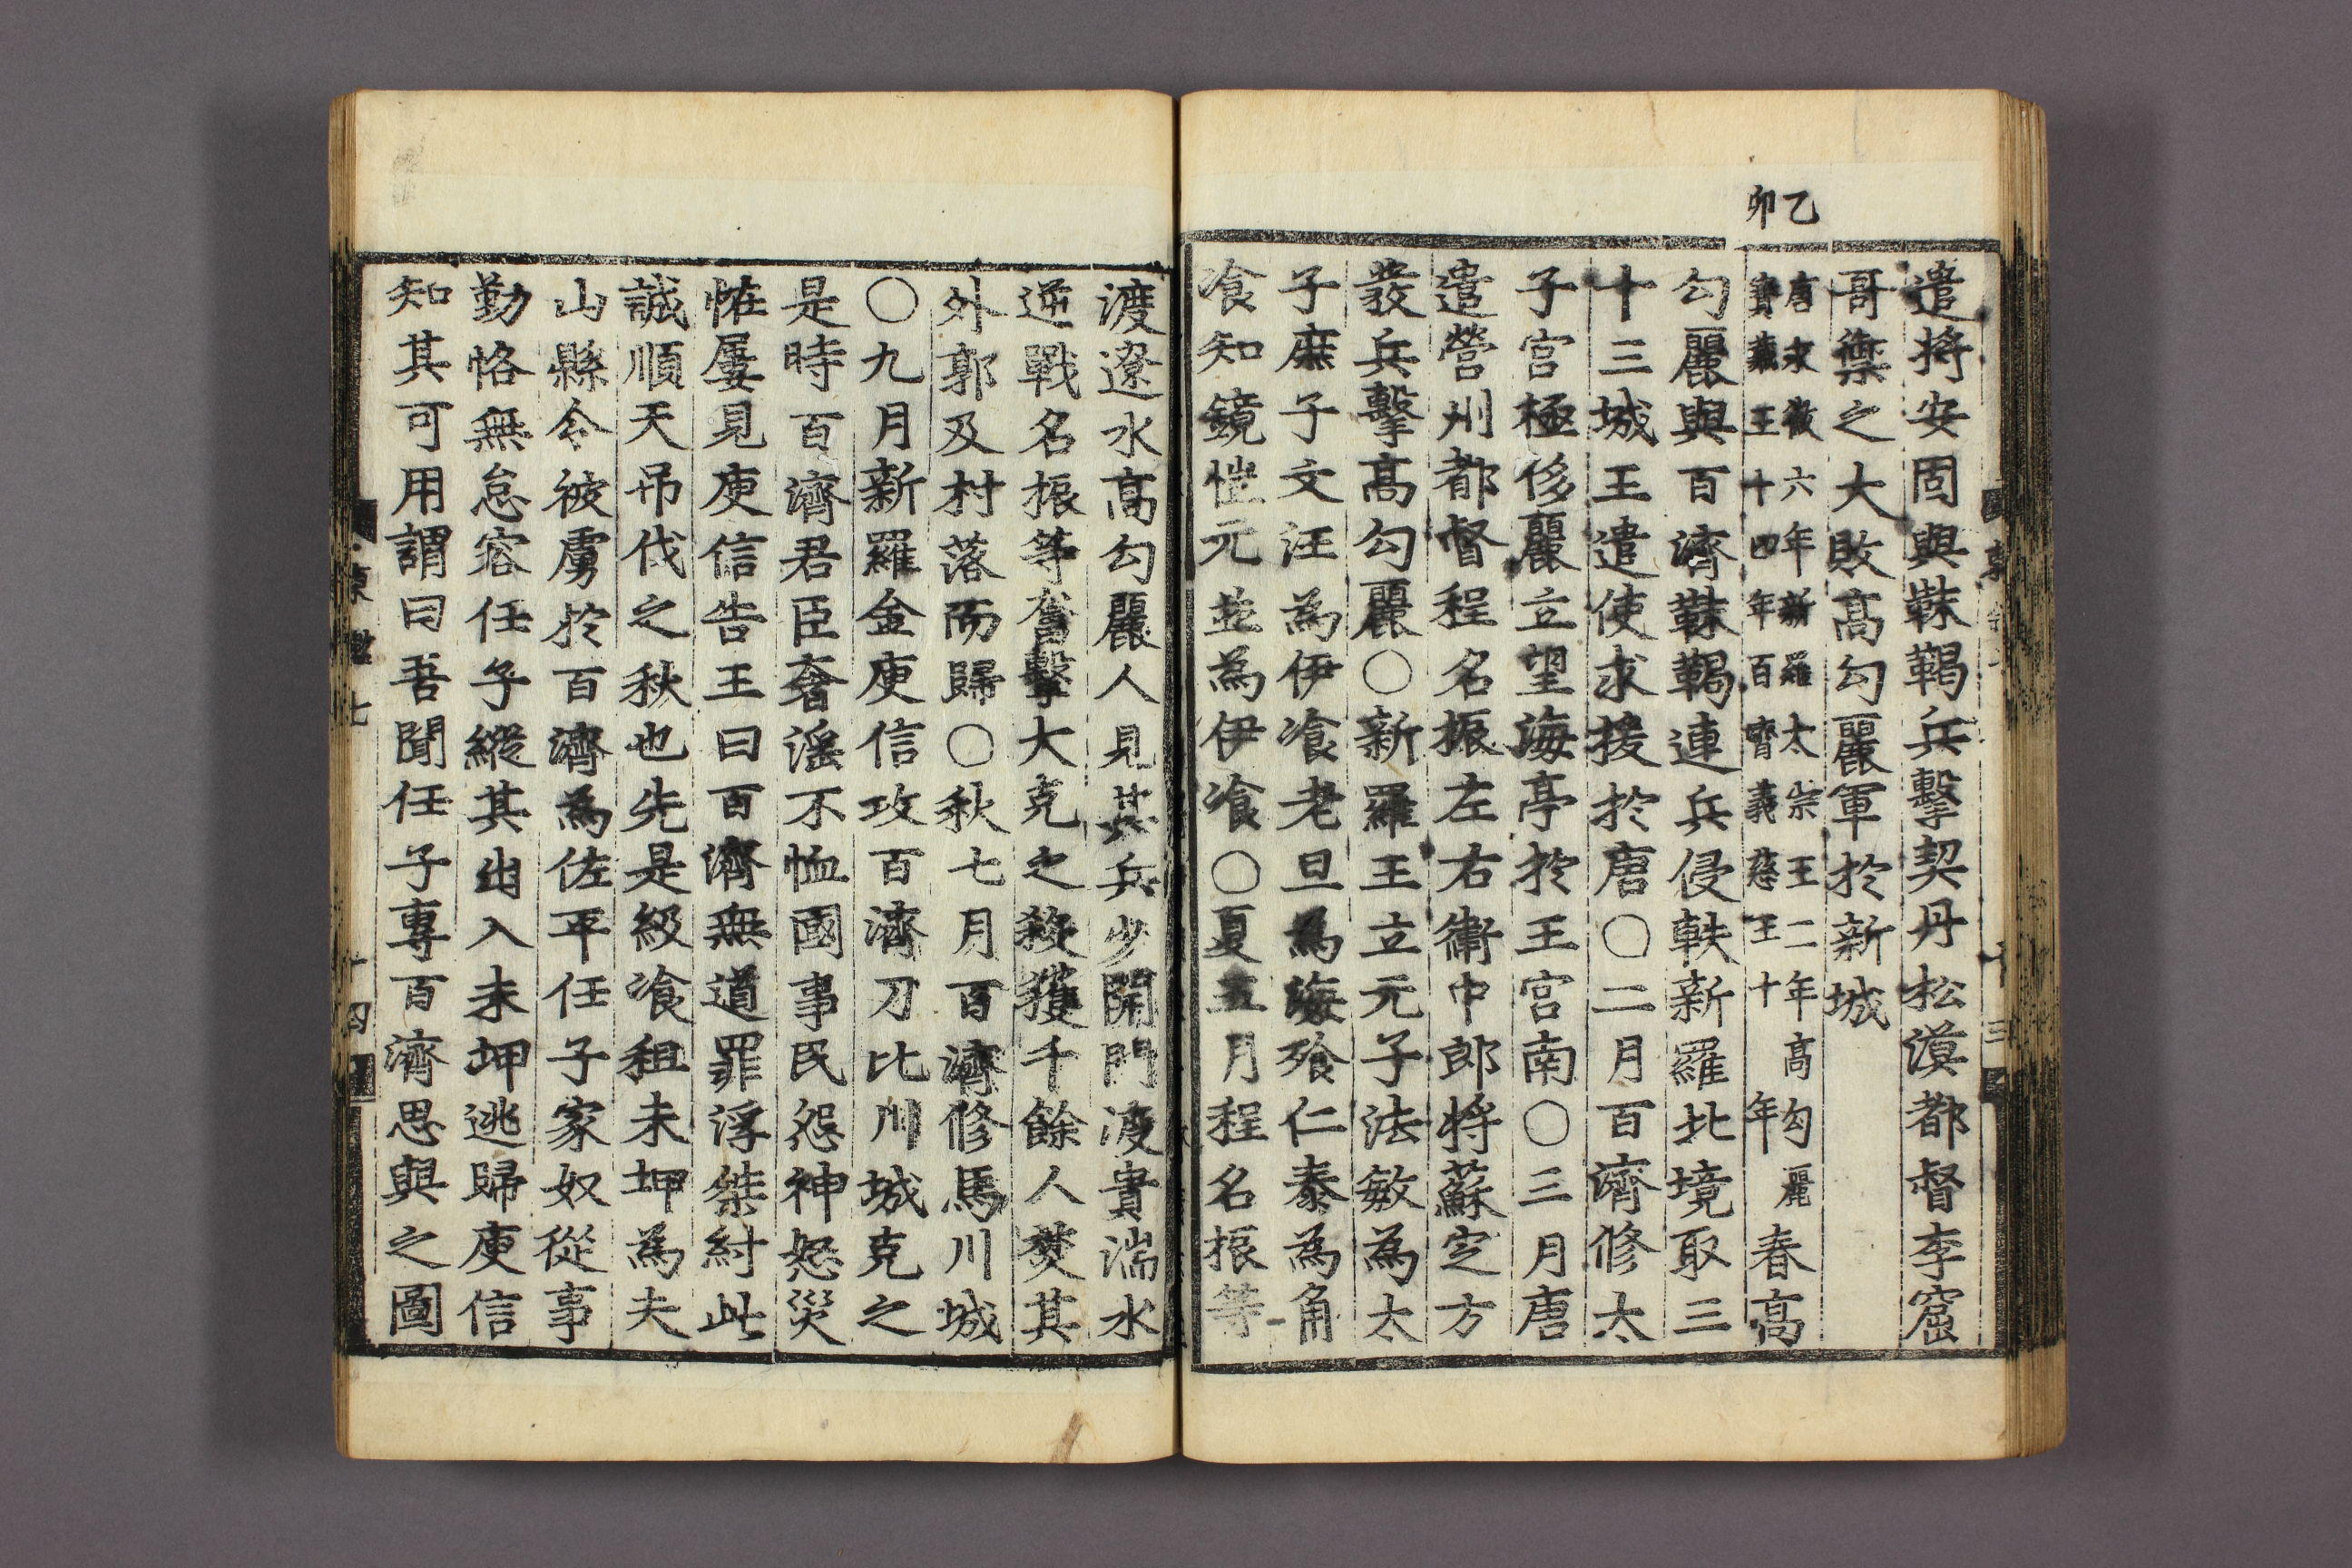 乙卯
遣將安固與靺鞨兵擊契丹松漠都督李窟
哥禦之大敗高勾麗軍於新城
唐永徽六年新羅太宗王二年高勾麗
寶藏王十四年百濟義慈王十年
春高
勾麗與百濟靺鞨連兵侵軼新羅北境取三
十三城王遣使求援於唐〇二月百濟修太
子宮極侈麗立望海亭於王宮南〇三月唐
遣營州都督程名振左右衛中郎將蘇定方
發兵擊高勾麗〇新羅王立元子法敏為太
子庶子文汪為伊飡老旦為海飡仁泰為角
飡知鏡愷元並為伊飡〇夏五月程名振等
渡遼水高勾麗人見其兵少開門渡貴湍水
逆戰名振等奮擊大克之殺獲千餘人焚其
外郭及村落而歸〇秋七月百濟修馬川城
〇九月新羅金庾信攻百濟刀比川城克之
是時百濟君臣奢淫不恤國事民怨神怒災
恠屢見庾信告王曰百濟無道罪浮桀紂此
誠順天吊伐之秋也先是級飡租未坤為夫
山縣令被虜於百濟為佐平任子家奴從事
勤恪無怠容任子縱其出入未坤逃歸庾信
知其可用謂曰吾聞任子專百濟思與之圖